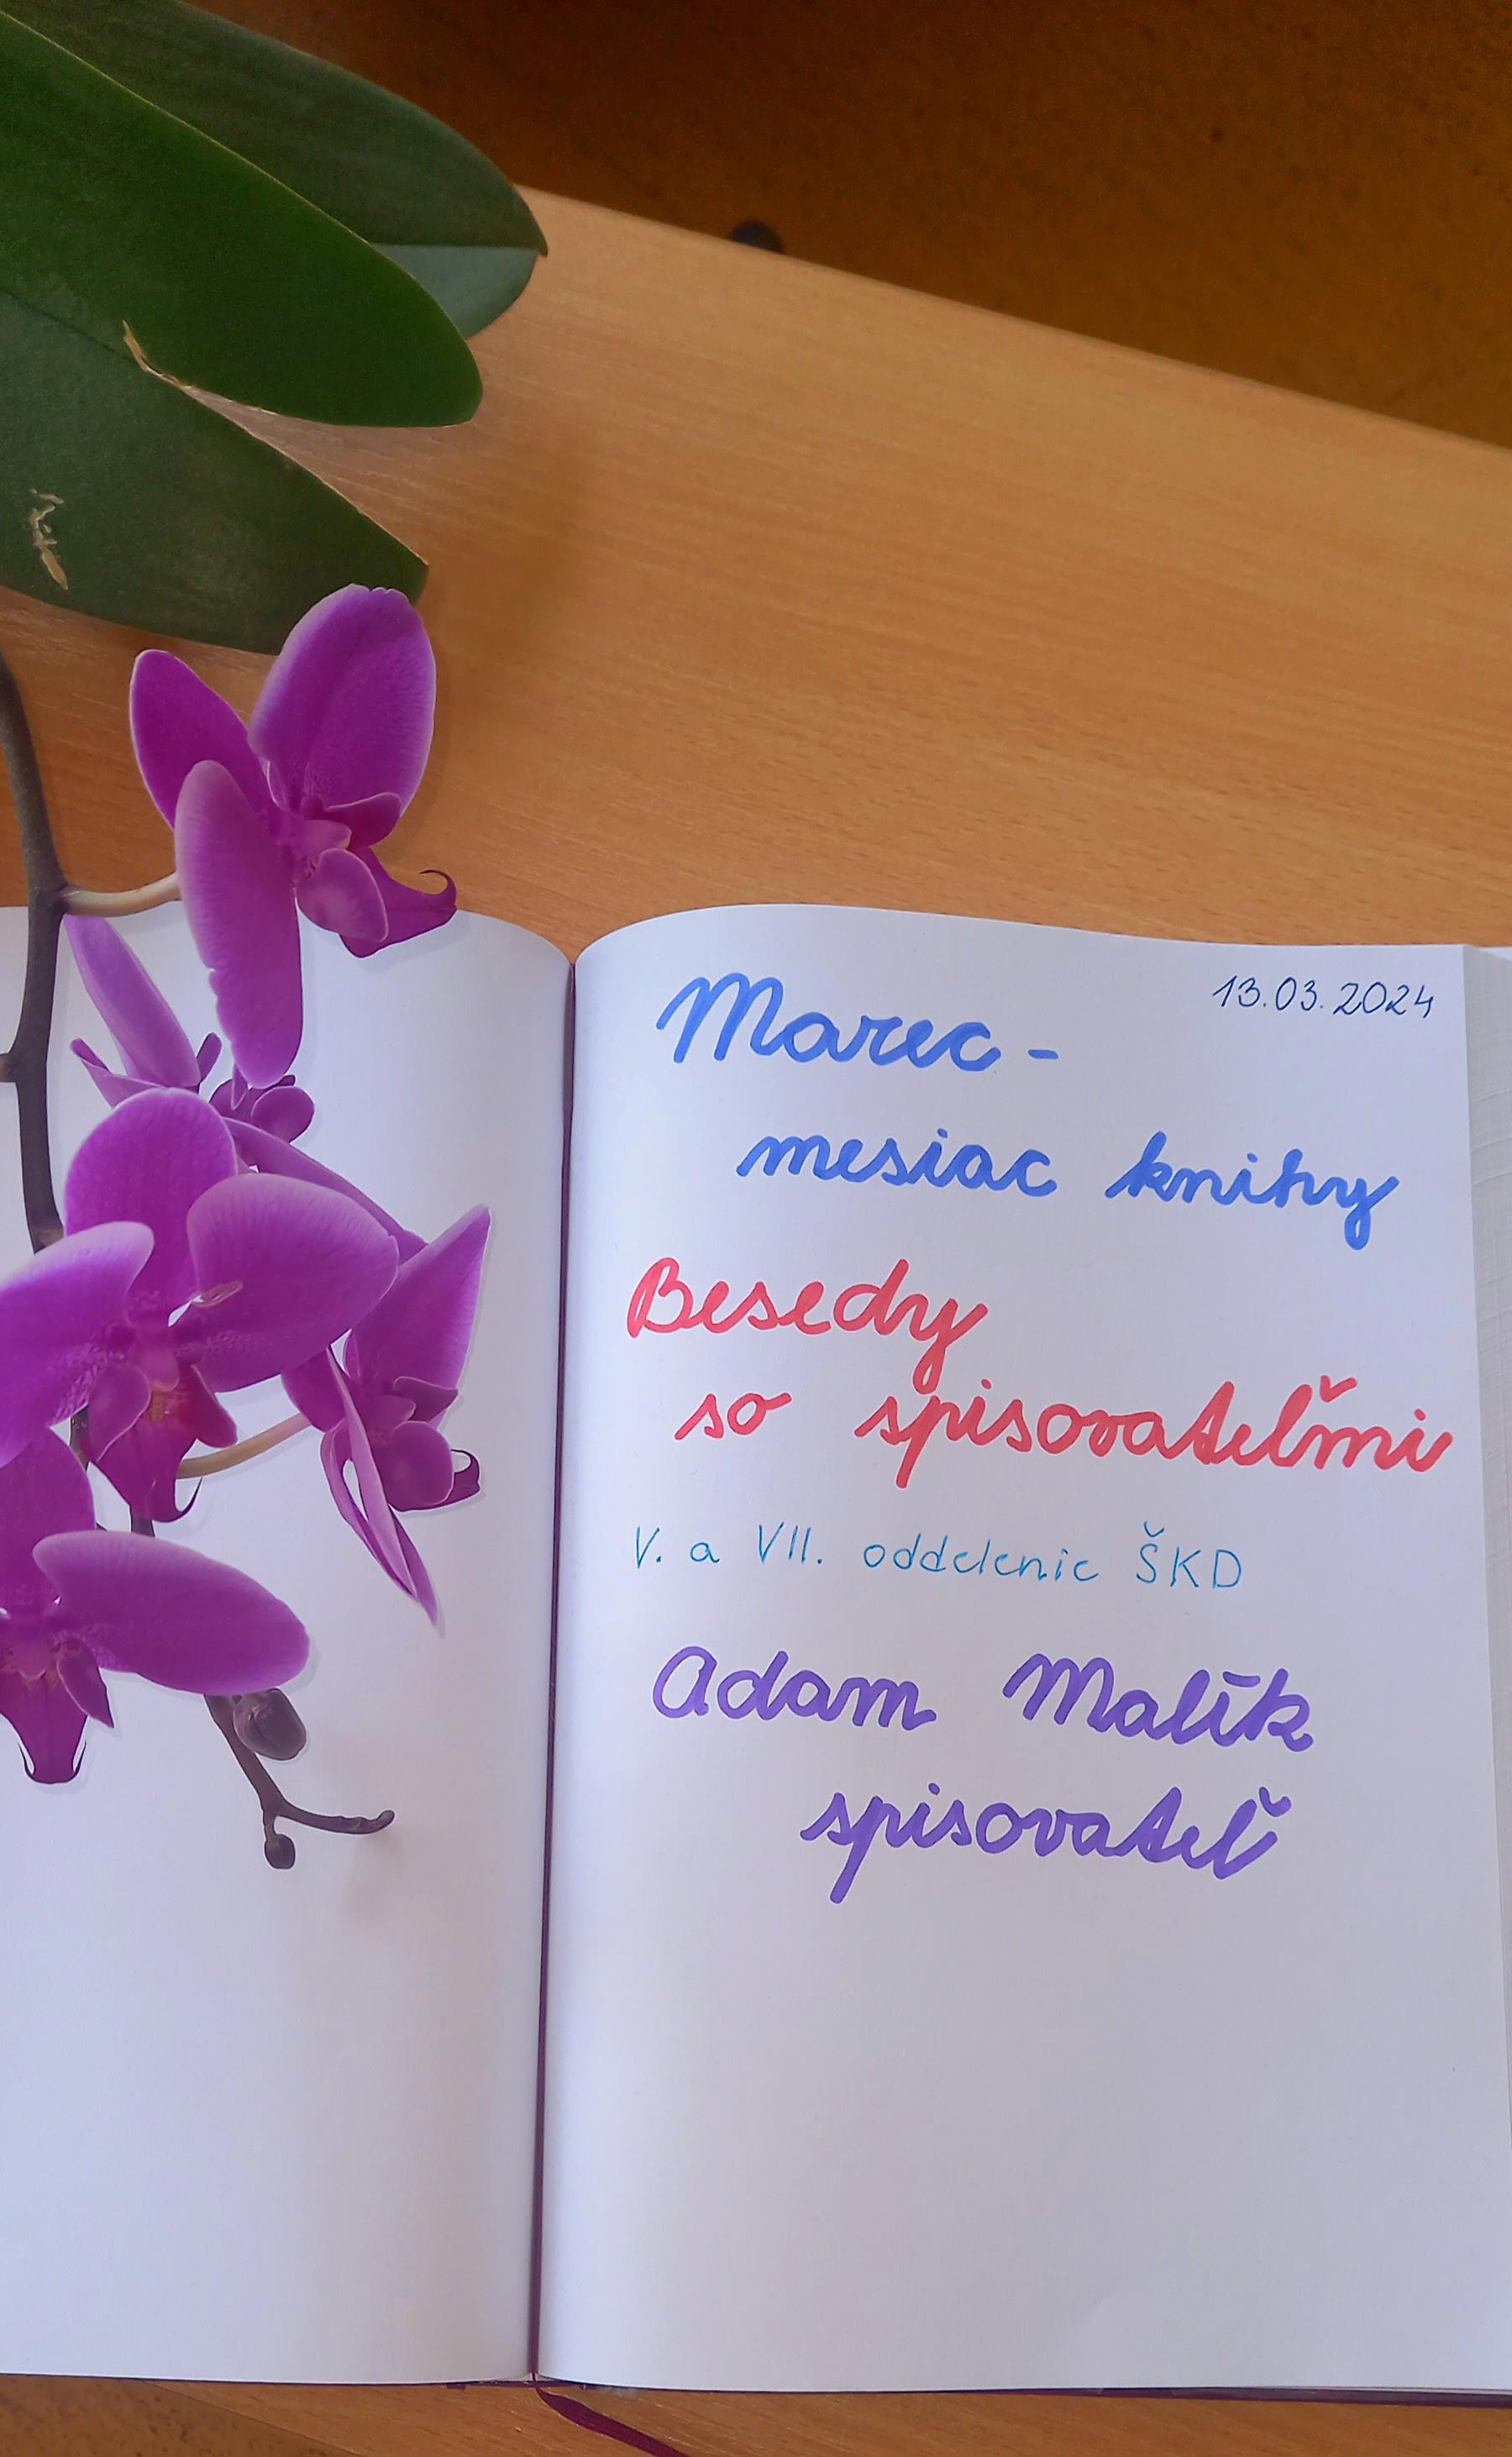 13.03.2024
Marec -
mesiac knihy
Besedy
so spisovateľmi
V. a VII. oddelenie ŠKD
Adam Malík
spisovateľ